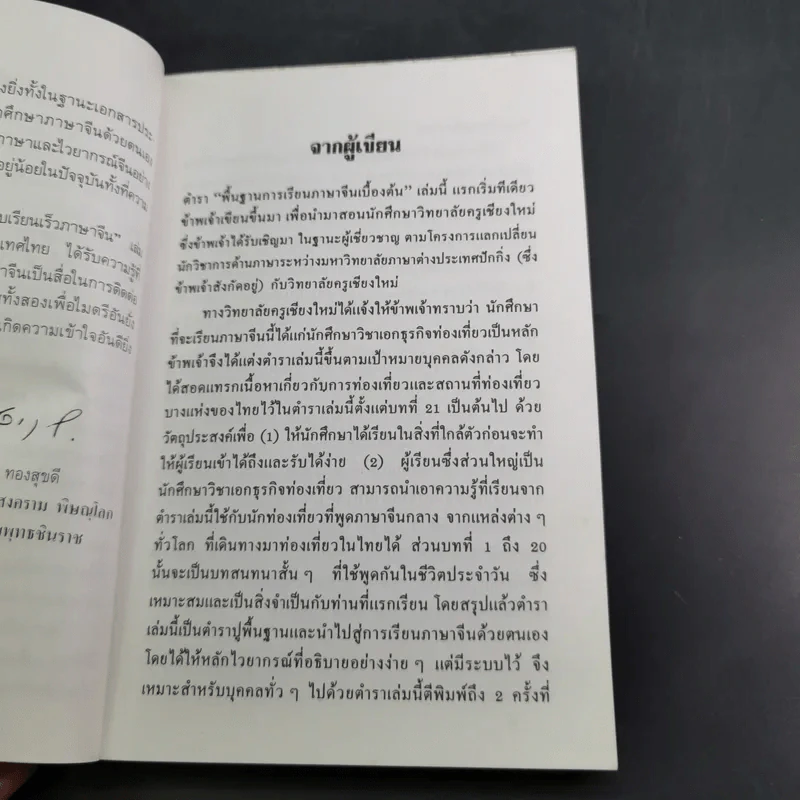 งยิ่งทั้งในฐานะเอกสารประ
ศึกษาภาษาจีนด้วยตนเอง
าษาและไวยากรณ์จีนอย่าง
อยู่น้อยในปัจจุบันทั้งที่ความ
บเรียนเร็วภาษาจีน” เล่ม
เทศไทย ได้รับความรู้ที่
าจีนเป็นสื่อในการติดต่อ
ทั้งสองเพื่อไมตรีอันยั่ง
เกิดความเข้าใจอันดียิ่ง
ทองสุขดี
สงคราม พิษณุโลก
พุทธชินราช
จากผู้เขียน
ตำรา “พื้นฐานการเรียนภาษาจีนเบื้องต้น” เล่มนี้ แรกเริ่มทีเดียว
ข้าพเจ้าเขียนขึ้นมา เพื่อนำมาสอนนักศึกษาวิทยาลัยครูเชียงใหม่
ซึ่งข้าพเจ้าได้รับเชิญมา ในฐานะผู้เชี่ยวชาญ ตามโครงการแลกเปลี่ยน
นักวิชาการด้านภาษาระหว่างมหาวิทยาลัยภาษาต่างประเทศปักกิ่ง (ซึ่ง
ข้าพเจ้าสังกัดอยู่) กับวิทยาลัยครูเชียงใหม่
ทางวิทยาลัยครูเชียงใหม่ได้แจ้งให้ข้าพเจ้าทราบว่า นักศึกษา
ที่จะเรียนภาษาจีนนี้ได้แก่นักศึกษาวิชาเอกธุรกิจท่องเที่ยวเป็นหลัก
ข้าพเจ้าจึงได้แต่งตำราเล่มนี้ขึ้นตามเป้าหมายบุคคลดังกล่าว โดย
ได้สอดแทรกเนื้อหาเกี่ยวกับการท่องเที่ยวและสถานที่ท่องเที่ยว
บางแห่งของไทยไว้ในตำราเล่มนี้ตั้งแต่บทที่ 21 เป็นต้นไป ด้วย
วัตถุประสงค์เพื่อ (1) ให้นักศึกษาได้เรียนในสิ่งที่ใกล้ตัวก่อนจะทำ
ให้ผู้เรียนเข้าได้ถึงและรับได้ง่าย (2) ผู้เรียนซึ่งส่วนใหญ่เป็น
นักศึกษาวิชาเอกธุรกิจท่องเที่ยว สามารถนำเอาความรู้ที่เรียนจาก
ตำราเล่มนี้ใช้กับนักท่องเที่ยวที่พูดภาษาจีนกลาง จากแหล่งต่าง ๆ
ทั่วโลก ที่เดินทางมาท่องเที่ยวในไทยได้ ส่วนบทที่ 1 ถึง 20
นั้นจะเป็นบทสนทนาสั้น ๆ ที่ใช้พูดกันในชีวิตประจำวัน ซึ่ง
เหมาะสมและเป็นสิ่งจำเป็นกับท่านที่แรกเรียน โดยสรุปแล้วตำรา
เล่มนี้เป็นตำราปูพื้นฐานและนำไปสู่การเรียนภาษาจีนด้วยตนเอง
โดยได้ให้หลักไวยากรณ์ที่อธิบายอย่างง่าย ๆ แต่มีระบบไว้ จึง
เหมาะสำหรับบุคคลทั่ว ๆ ไปด้วยตำราเล่มนี้ตีพิมพ์ถึง 2 ครั้งที่